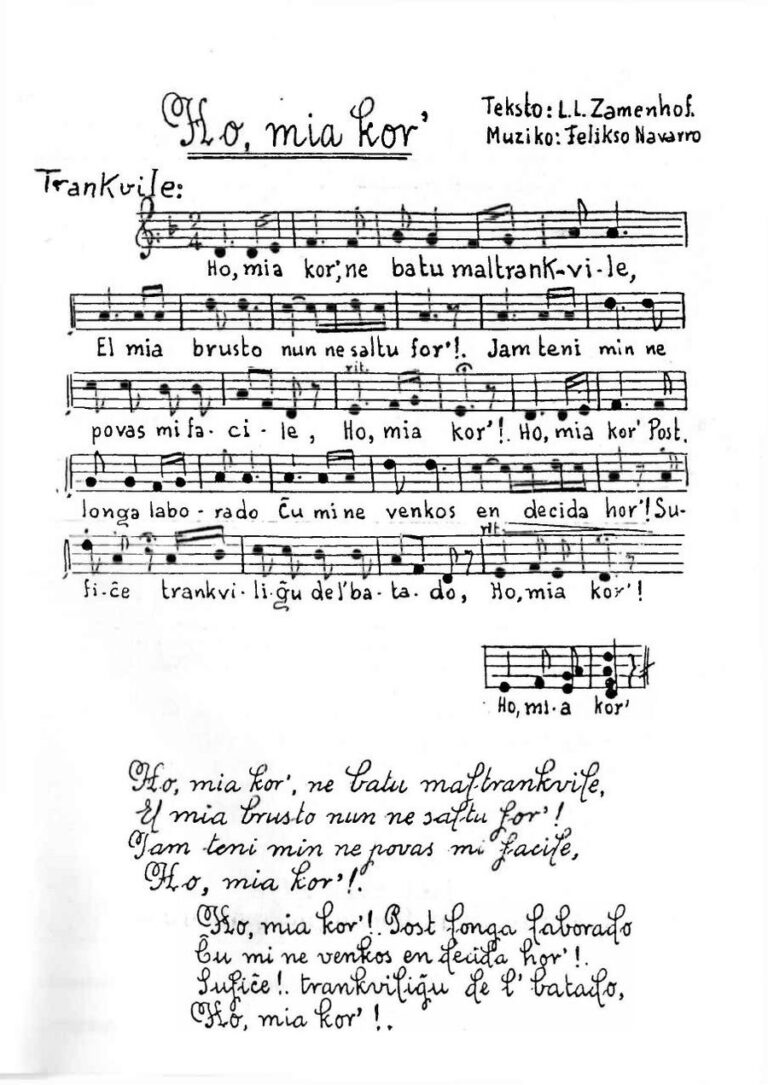 Ho, mia kor'
Teksto: L.L. Zamenhof.
Muziko: Felikso Navarro
Trankvile:
2
4
Ho, mia kor', ne batu maltrank-vi-le,
El mia brusto nun ne saltu for'!. Jam teni min ne
rit.
povas mi fa-ci-le, Ho, mia kor'!. Ho, mia kor' Post.
longa labo-rado Ĉu mi ne venkos en decida hor'! Su-
rit.
fi-ĉe trankvi-li-ĝu de l' ba-ta-do, Ho, mia kor'!
Ho, mi-a kor'
Ho, mia kor', ne batu maltrankvile,
El mia brusto nun ne saltu for'!
Jam teni min ne povas mi facile,
Ho, mia kor'!.
Ho, mia kor'!. Post longa laborado
Ĉu mi ne venkos en decida hor'!.
Sufiĉe!. trankviliĝu de l' batado,
Ho, mia kor'!.